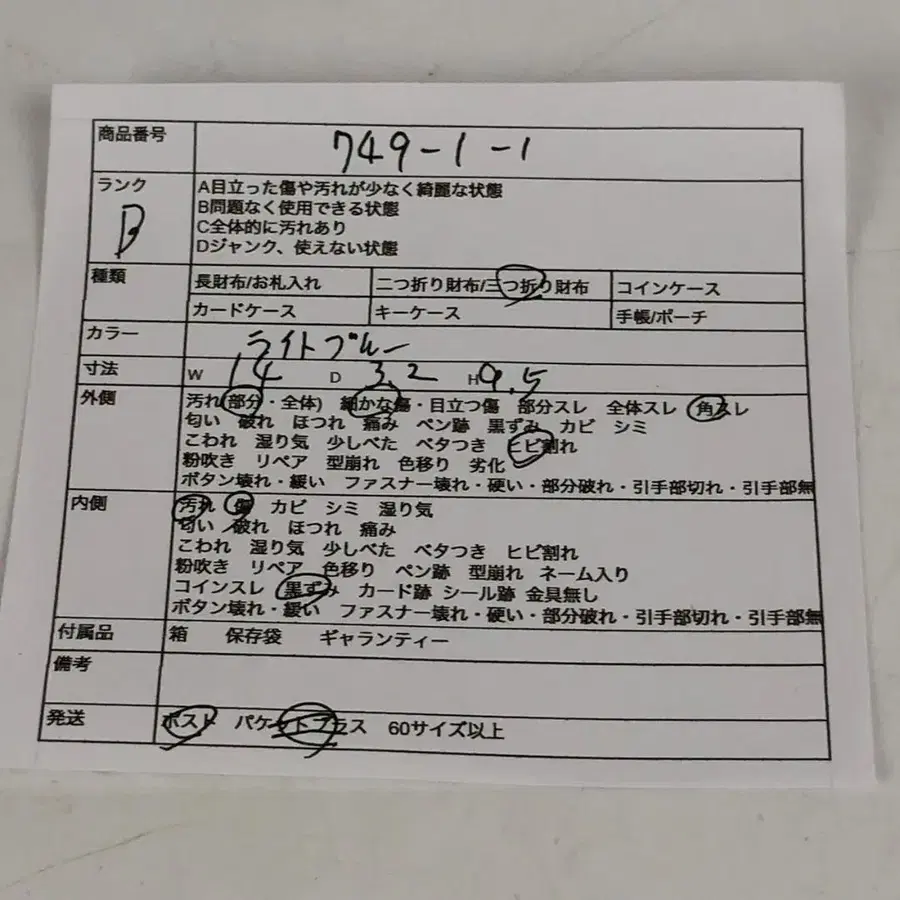 商品番号 749-1-1
ランク B
A目立った傷や汚れが少なく綺麗な状態
B問題なく使用できる状態
C全体的に汚れあり
Dジャンク、使えない状態
種類 長財布/お札入れ 二つ折り財布/三つ折り財布 コインケース
カードケース キーケース 手帳/ポーチ
カラー ライトブルー
寸法 W 14 D 3.2 H 9.5
外側 汚れ(部分・全体) 細かな傷・目立つ傷 部分スレ 全体スレ 角スレ
匂い 破れ ほつれ 痛み ペン跡 黒ずみ カビ シミ
こわれ 湿り気 少しべた ベタつき ヒビ割れ
粉吹き リペア 型崩れ 色移り 劣化
ボタン壊れ・緩い ファスナー壊れ・硬い・部分破れ・引手部切れ・引手部無
内側 汚れ 傷 カビ シミ 湿り気
匂い 破れ ほつれ 痛み
こわれ 湿り気 少しべた ベタつき ヒビ割れ
粉吹き リペア 色移り ペン跡 型崩れ ネーム入り
コインスレ 黒ずみ カード跡 シール跡 金具無し
ボタン壊れ・緩い ファスナー壊れ・硬い・部分破れ・引手部切れ・引手部無
付属品 箱 保存袋 ギャランティー
備考
発送 ポスト パケットプラス 60サイズ以上